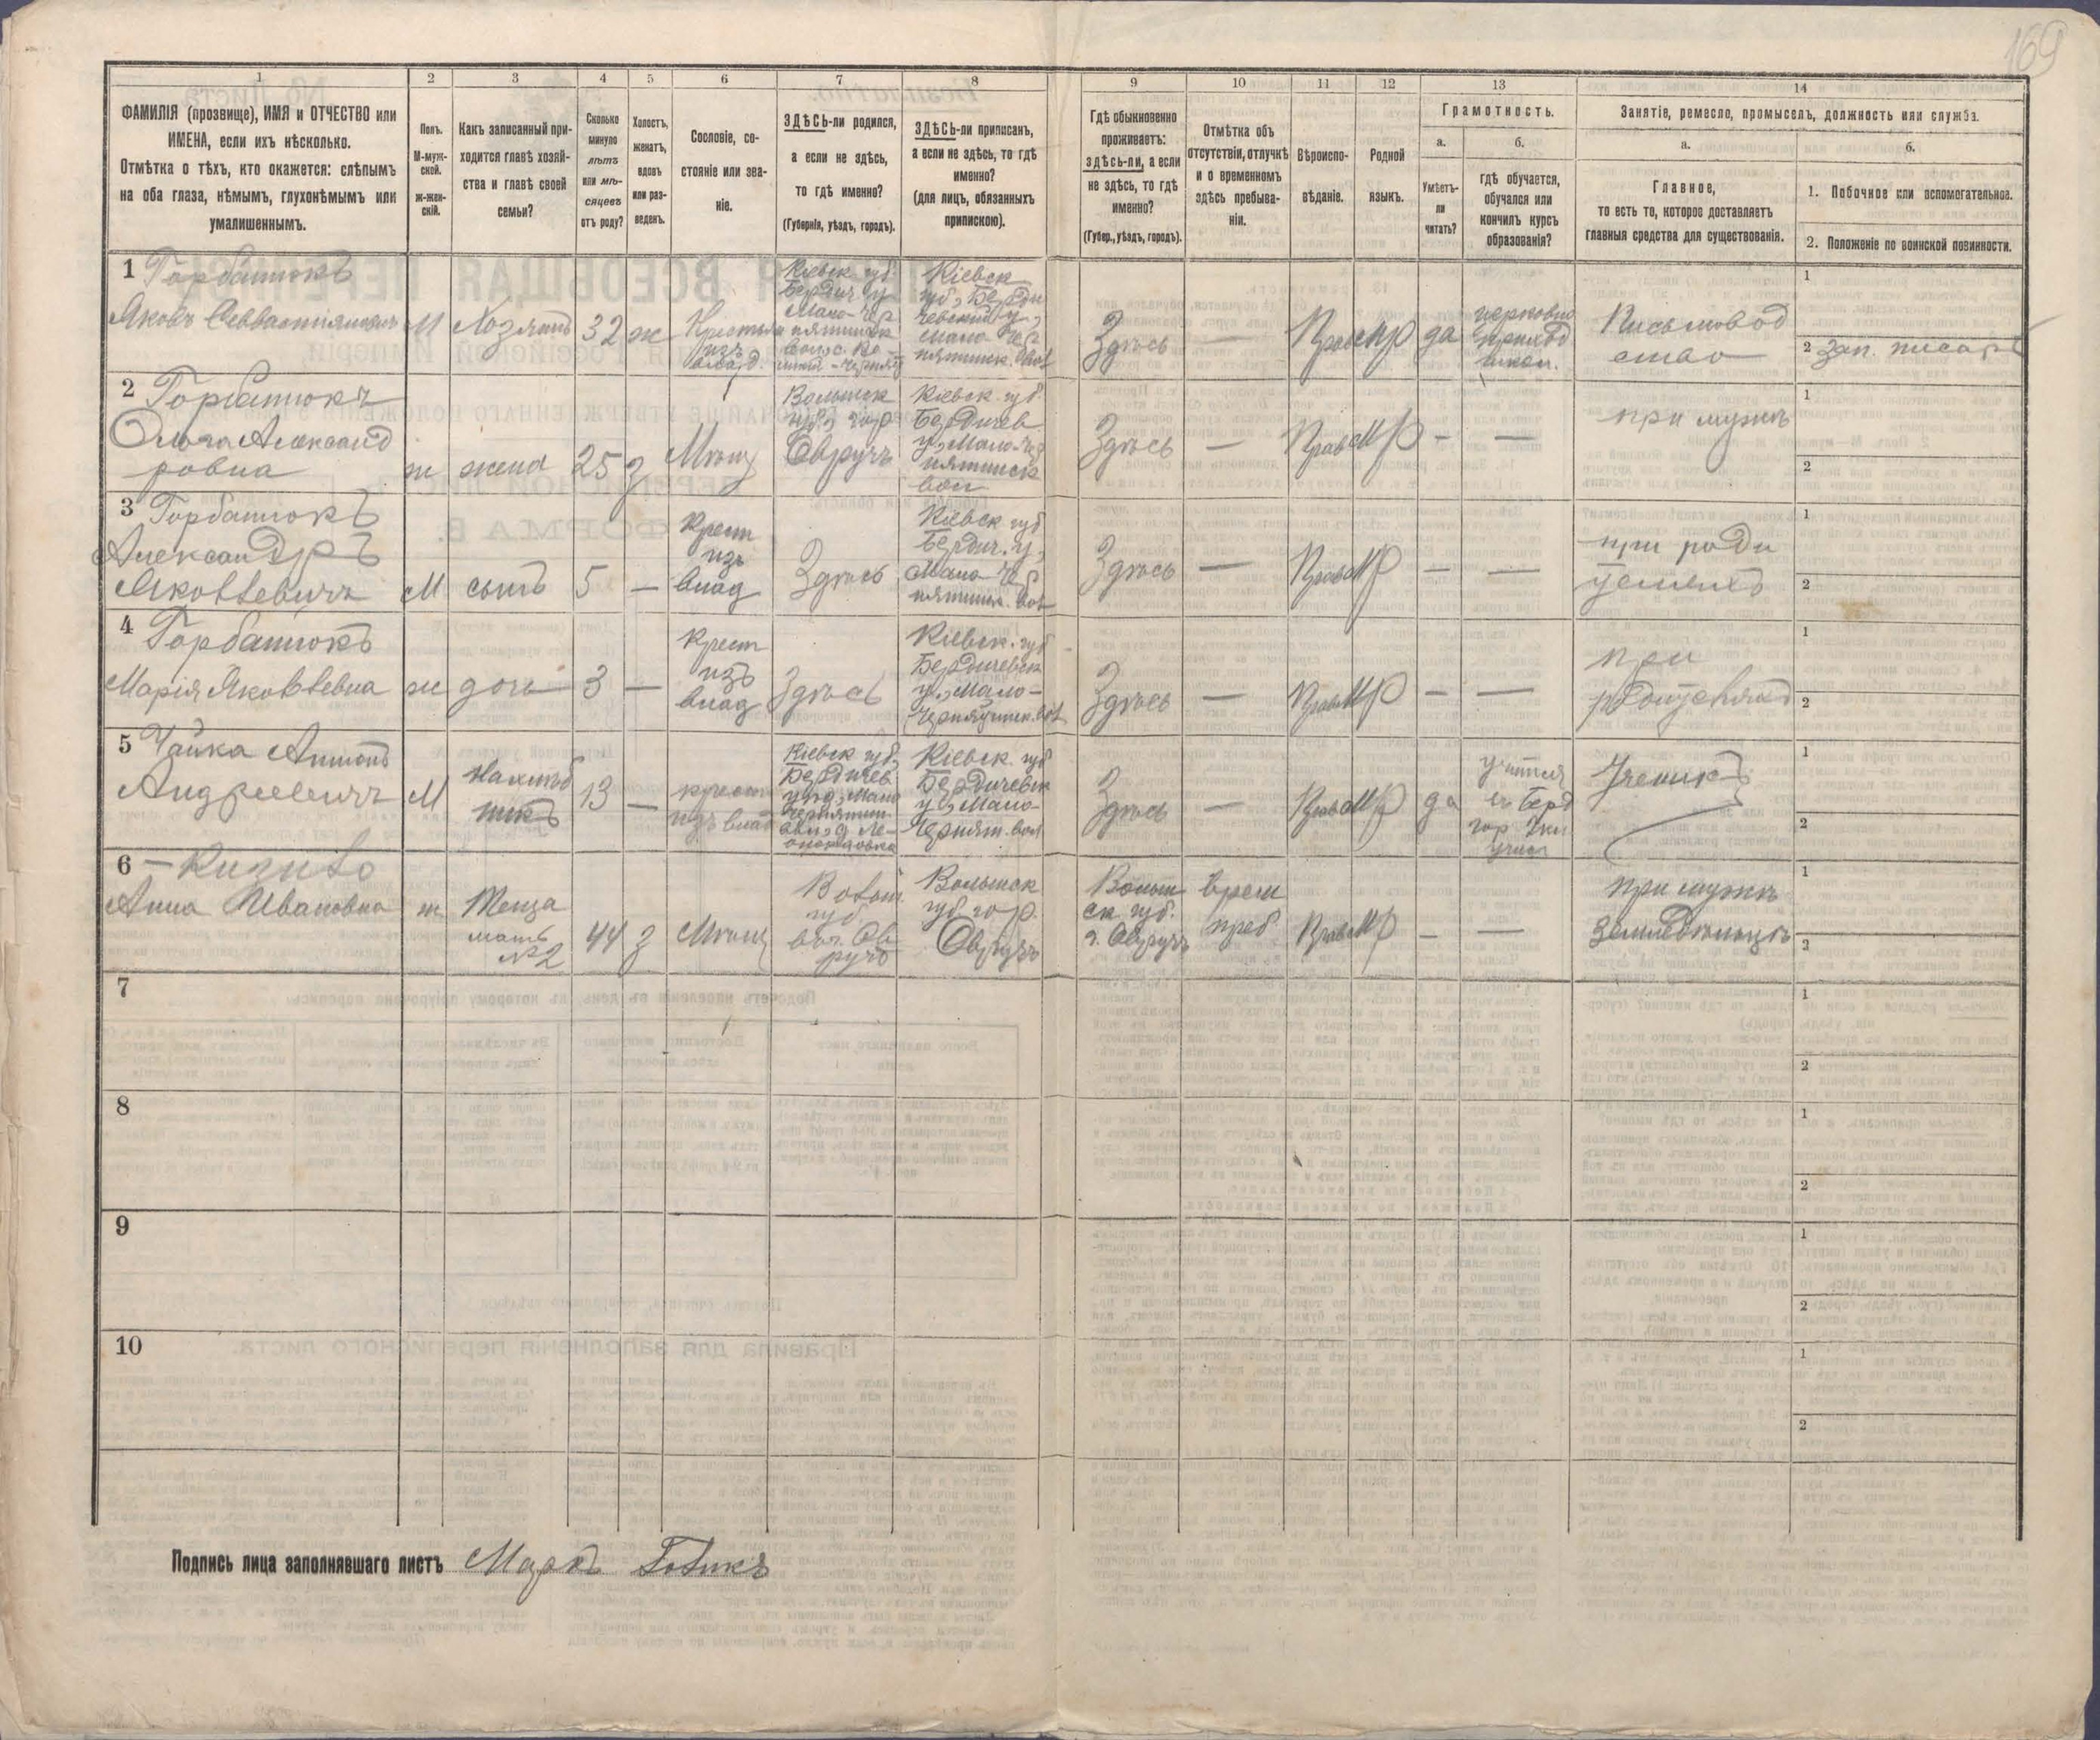 169
1
2
3
4
5
6
7
8
9
10
11
12
13
14
ФАМИЛІЯ (прозвище), ИМЯ и ОТЧЕСТВО или
ИМЕНА, если ихъ нѣсколько.
Отмѣтка о тѣхъ, кто окажется: слѣпымъ
на оба глаза, нѣмымъ, глухонѣмымъ или
умалишеннымъ.
Полъ.
М-муж-
ской.
ж-жен-
скій.
Какъ записанный при-
ходится главѣ хозяй-
ства и главѣ своей
семьи?
Сколько
минуло
лѣтъ
или мѣ-
сяцевъ
отъ роду?
Холостъ,
женатъ,
вдовъ
или раз-
веденъ.
Сословіе, со-
стояніе или зва-
ніе.
ЗДѢСЬ-ли родился,
а если не здѣсь,
то гдѣ именно?
(Губернія, уѣздъ, городъ).
ЗДѢСЬ-ли приписанъ,
а если не здѣсь, то гдѣ
именно?
(для лицъ, обязанныхъ
припискою).
Гдѣ обыкновенно
проживаетъ:
здѣсь-ли, а если
не здѣсь, то гдѣ
именно?
(Губер., уѣздъ, городъ).
Отмѣтка объ
отсутствіи, отлучкѣ
и о временномъ
здѣсь пребыва-
ніи.
Вѣроиспо-
вѣданіе.
Родной
языкъ.
Грамотность.
а.
Умѣетъ-
ли
читать?
б.
гдѣ обучается,
обучался или
кончилъ курсъ
образованія?
Занятіе, ремесло, промыселъ, должность или служба.
а.
Главное,
то есть то, которое доставляетъ
главныя средства для существованія.
б.
1. Побочное или вспомогательное.
2. Положеніе по воинской повинности.
1 Горбатюкъ
Яковъ Севастіяновичъ
М
Хозяинъ
32
ж
Крестьян
изъ
влад.
Кіевск. губ.
Бердич. у
Кіевск
губ., Берди
чевский у,
Здѣсь
—
Прав
МР
да
церковно
приход
школ.
Письмовод
ство
1
2 Зап. писарь
2 Горбатюкъ
Ольга Александ
ровна
ж
жена
25
з
Мѣщ
Волынск
губ., гор
Овручъ
Кіевск. губ.
Бердичев
у, Мало-Чер
нятинск
вол
Здѣсь
—
Прав
МР
—
—
при мужѣ
1
2
3 Горбатюкъ
Александръ
Яковлевичъ
М
сынъ
5
—
Крест
изъ
влад
Здѣсь
Кіевск. губ
Бердич. у,
Мало-Чер
нятинск. вол
Здѣсь
—
Прав
МР
—
—
при роди
теляхъ
1
2
4 Горбатюкъ
Марія Яковлевна
ж
дочь
3
—
Крест
изъ
влад
Здѣсь
Кіевск. губ
Бердичевск
у, Мало-
Чернятинск. вол
Здѣсь
—
Прав
МР
—
—
при
родителяхъ
1
2
5 Чайка Антонъ
Андреевичъ
М
Нахлѣб
никъ
13
—
крест
изъ влад
Кіевск губ,
Бердичев
Кіевск. губ
Бердичевск
у, Мало-
Чернят. вол
Здѣсь
—
Прав
МР
да
учится
въ Берд
гор
учил
Ученикъ
1
2
6
Анна Ивановна
ж
Теща
мать
№2
44
з
Мѣщ
губ
Ов
ручъ
Волынск
губ гор.
Овручъ
Волын
ск губ.
г. Овручъ
врем
преб
Прав
МР
—
—
при мужѣ
1
2
7
1
2
8
1
2
9
1
2
10
1
2
Подпись лица заполнявшаго листъ Маркъ